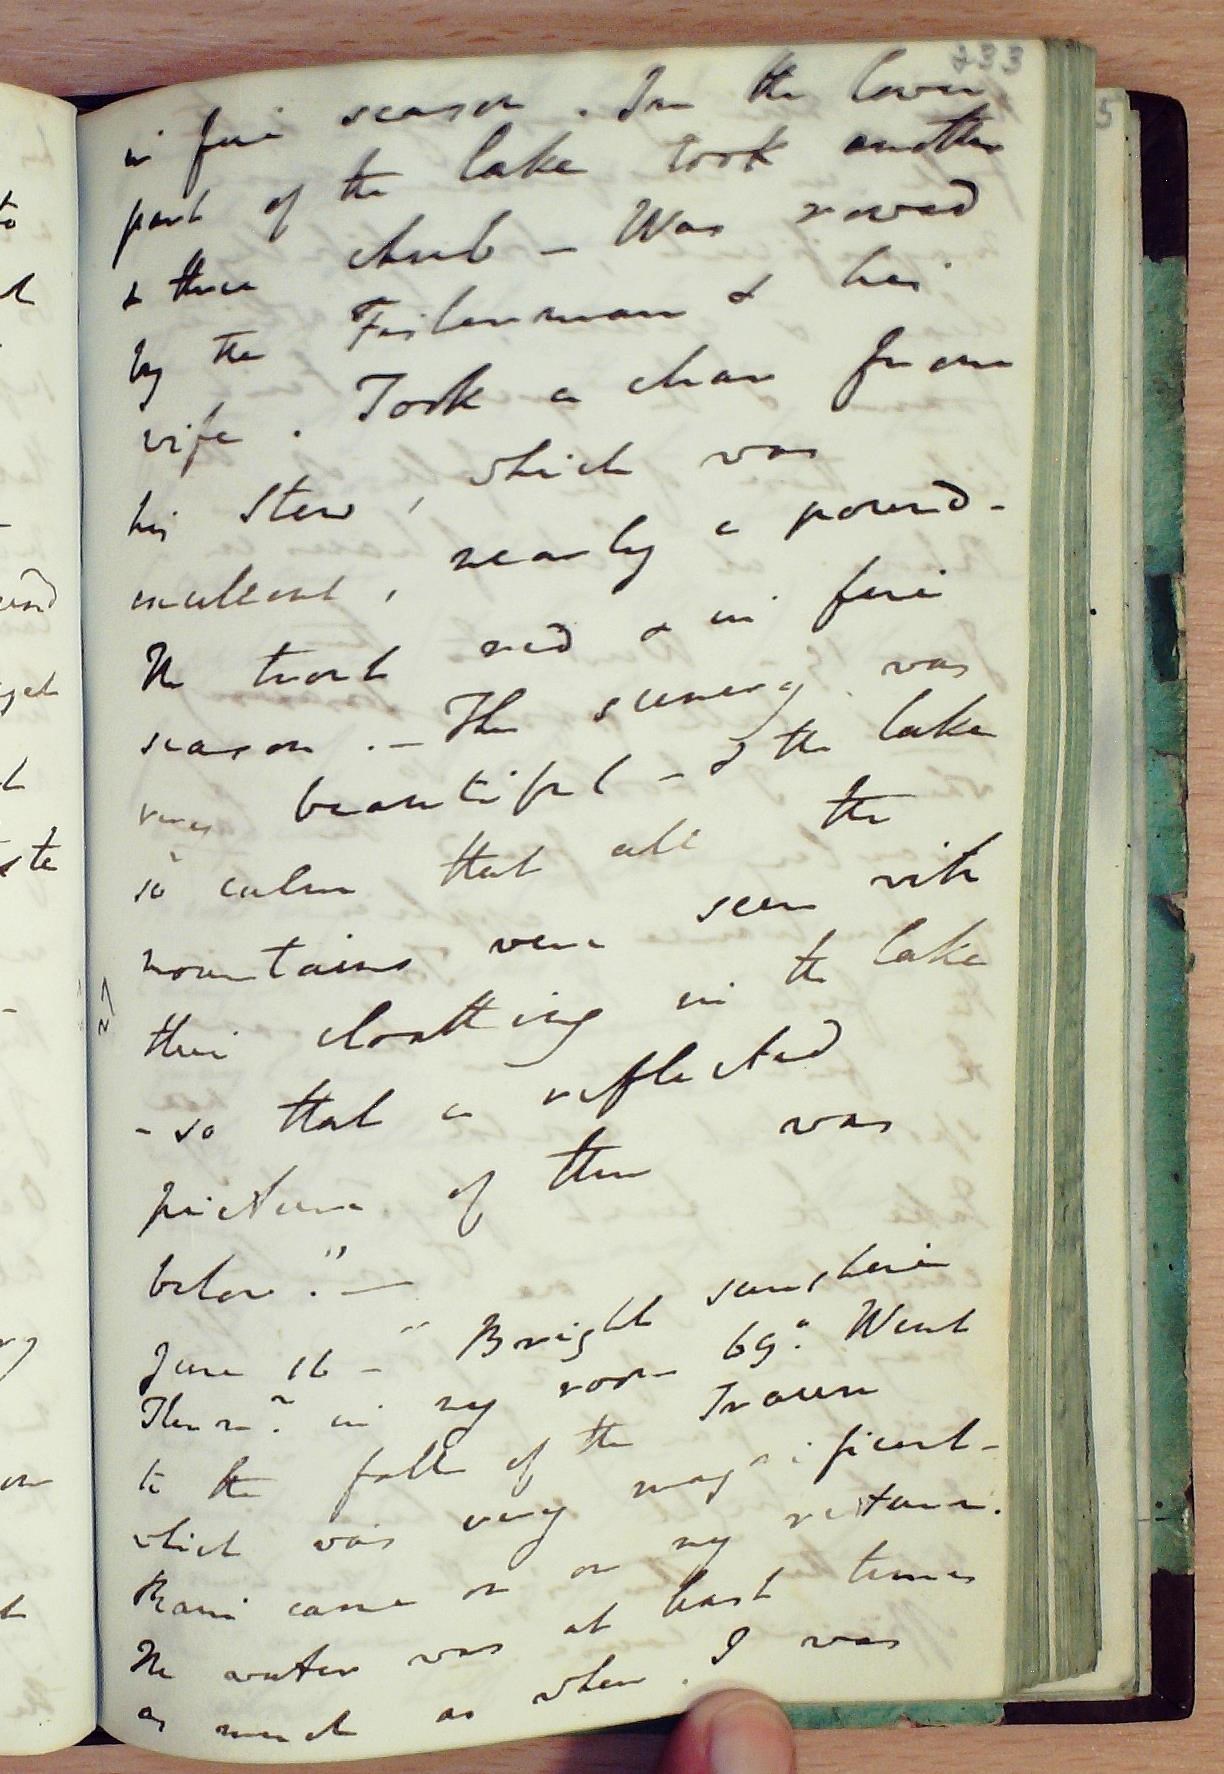 233
in fine season. In the lower
part of the lake took another
& three chub – Was rowed
by the Fisherman & his
wife. Took a char from
his stew, which was
excellent, nearly a pound –
The trout red & in fine
season. – The scenery was
very beautiful – & the lake
so calm that all the
mountains were seen with
their cloathing in the lake
– so that a reflected
picture of them was
below." –
June 16 – "Bright sunshine
Therm.r in my room 69°. Went
to the fall of the Traun
which was very magnificent –
Rain came on on my return.
The water was at least times
as much as when I was